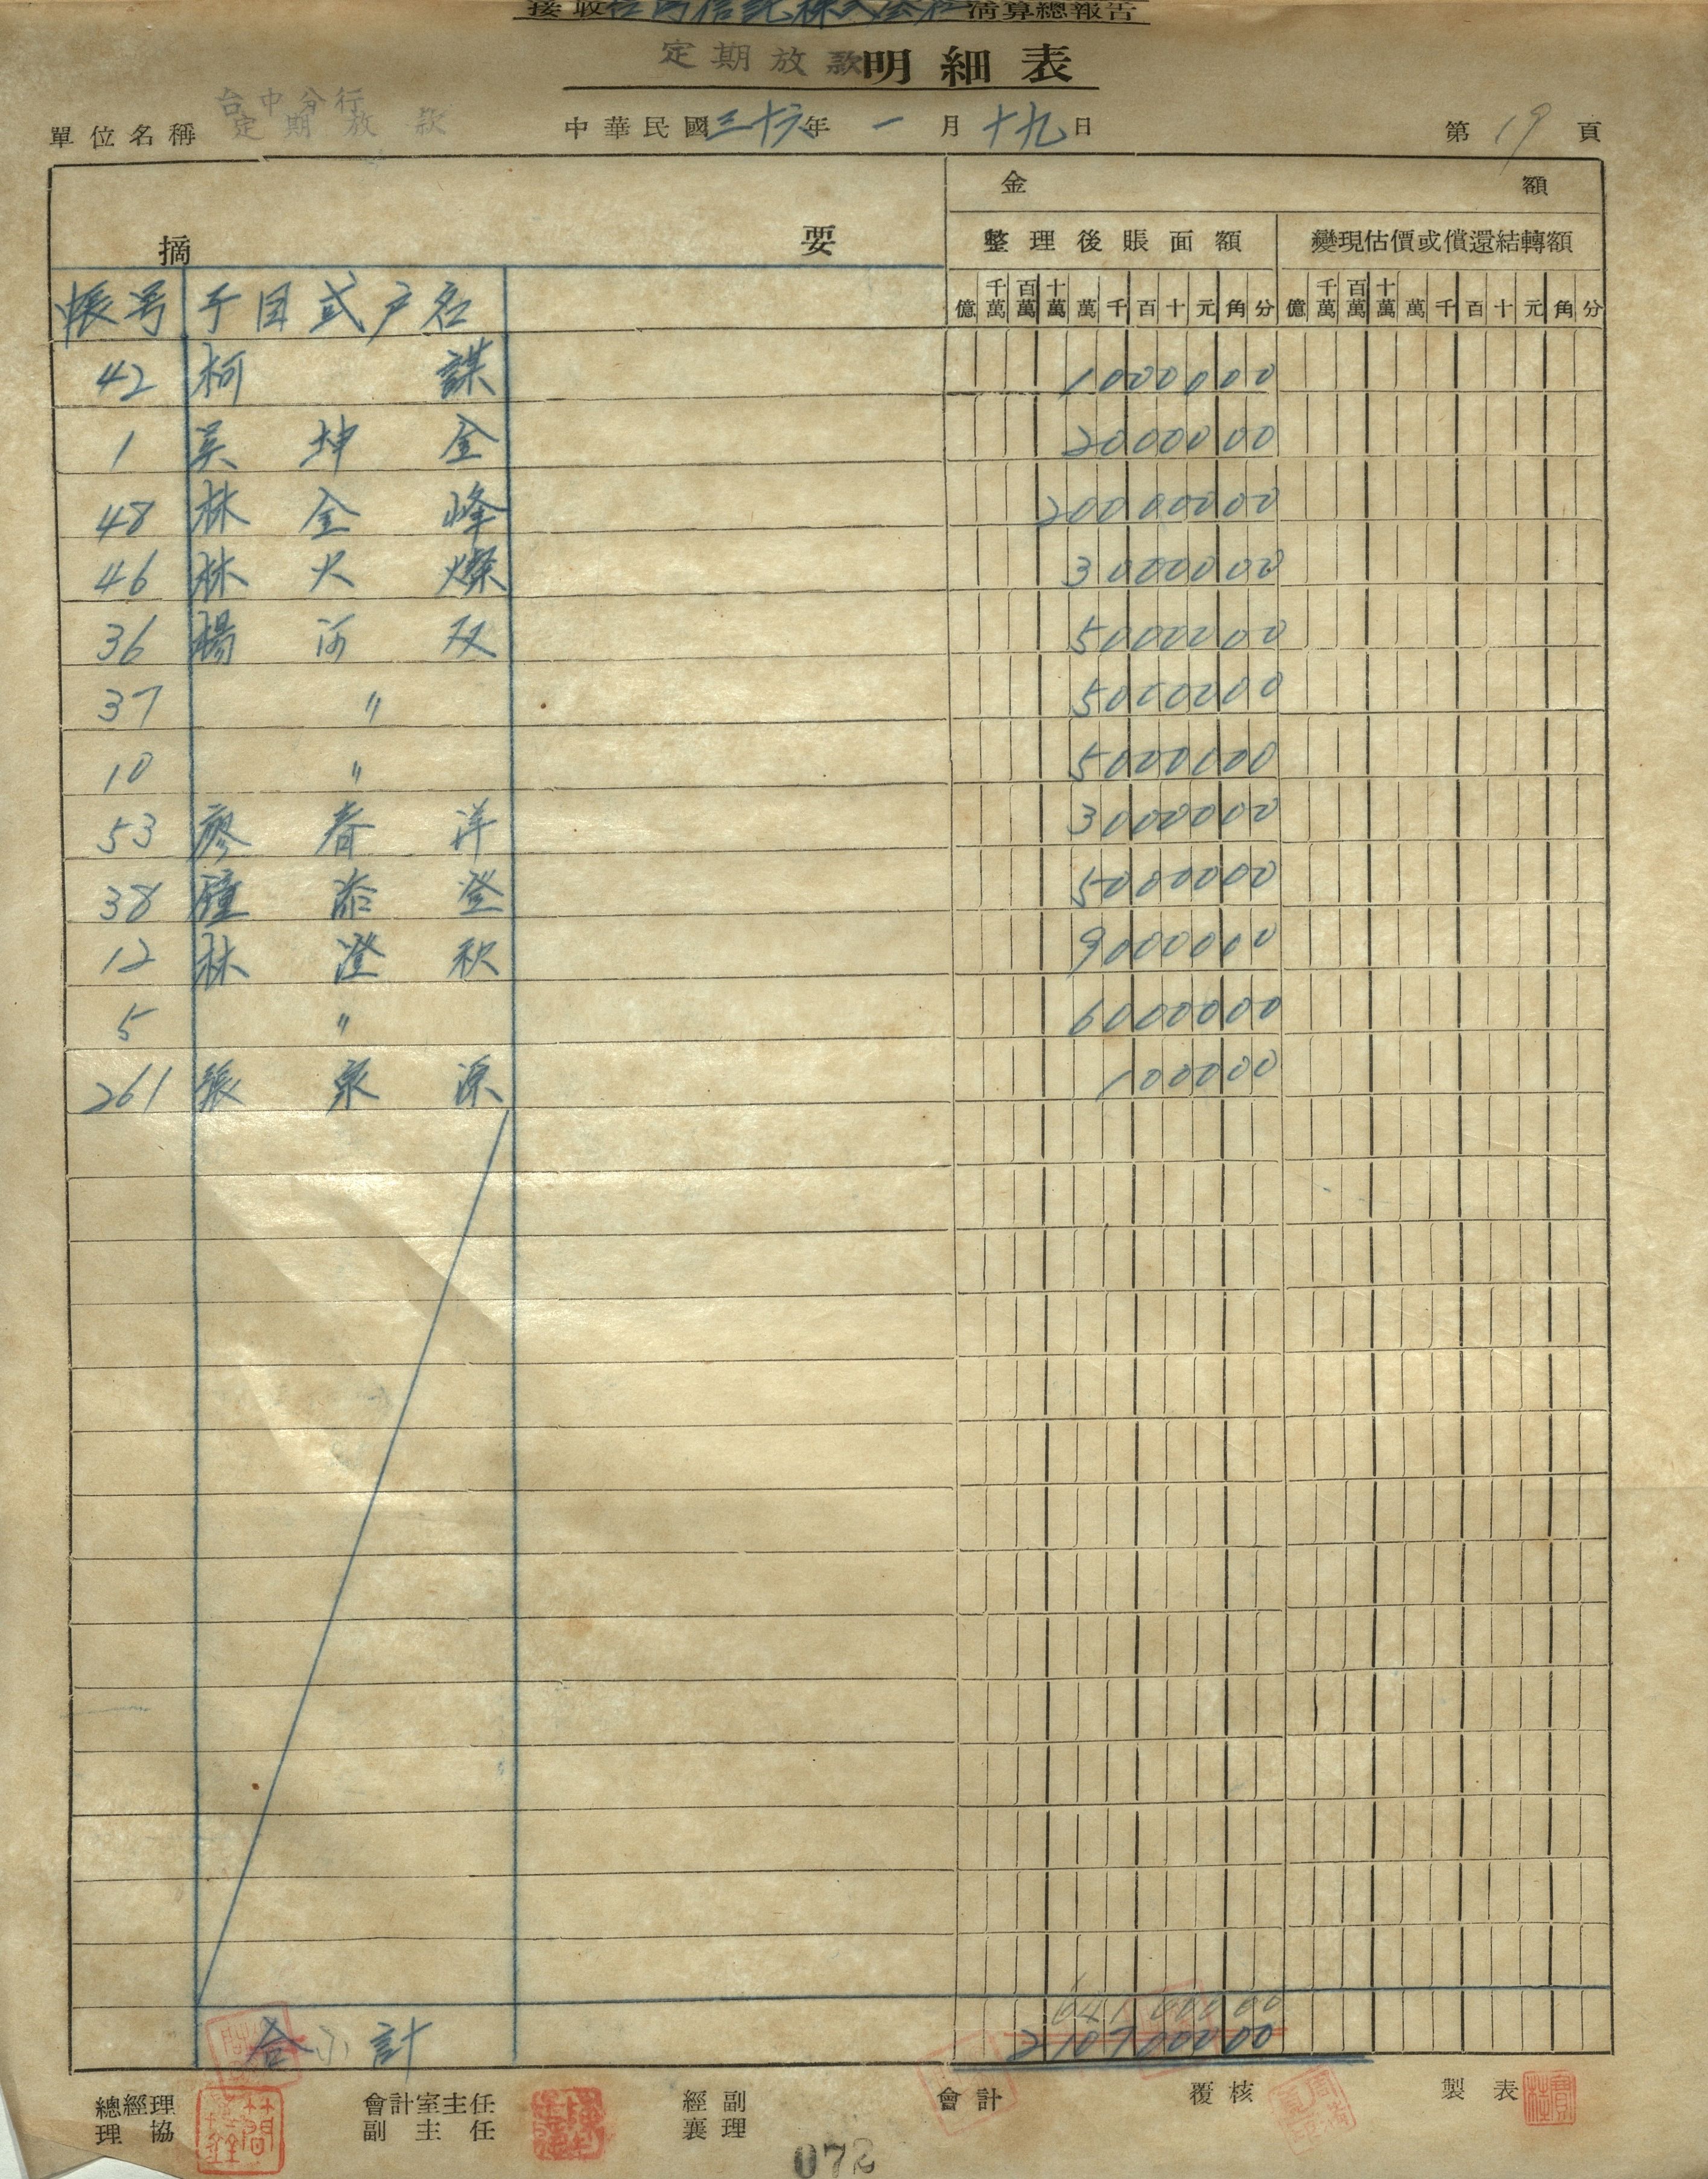 接收台湾信託株式会社清算總報告
定期放款明細表
台中分行
單位名稱 定期放款 中華民國三十六年一月十九日 第19頁
金額
摘要 整理後賬面額 變現估價或償還結轉額
帳号 子目或户名 億 千萬 百萬 十萬 萬 千 百 十 元 角 分 億 千萬 百萬 十萬 萬 千 百 十 元 角 分
42 柯謀 1000000
1 吴坤金 2000000
48 林金峰 20000000
46 林火燦 3000000
36 楊河双 5000000
37 〃 5000000
10 〃 5000000
53 廖春洋 3000000
38 鍾添登 5000000
12 林澄秋 9000000
5 〃 6000000
261 張泉源 100000
64100000
合小計 210700000
總經理 會計室主任 經副 會計 覆核 製表
理協 副主任 襄理
072